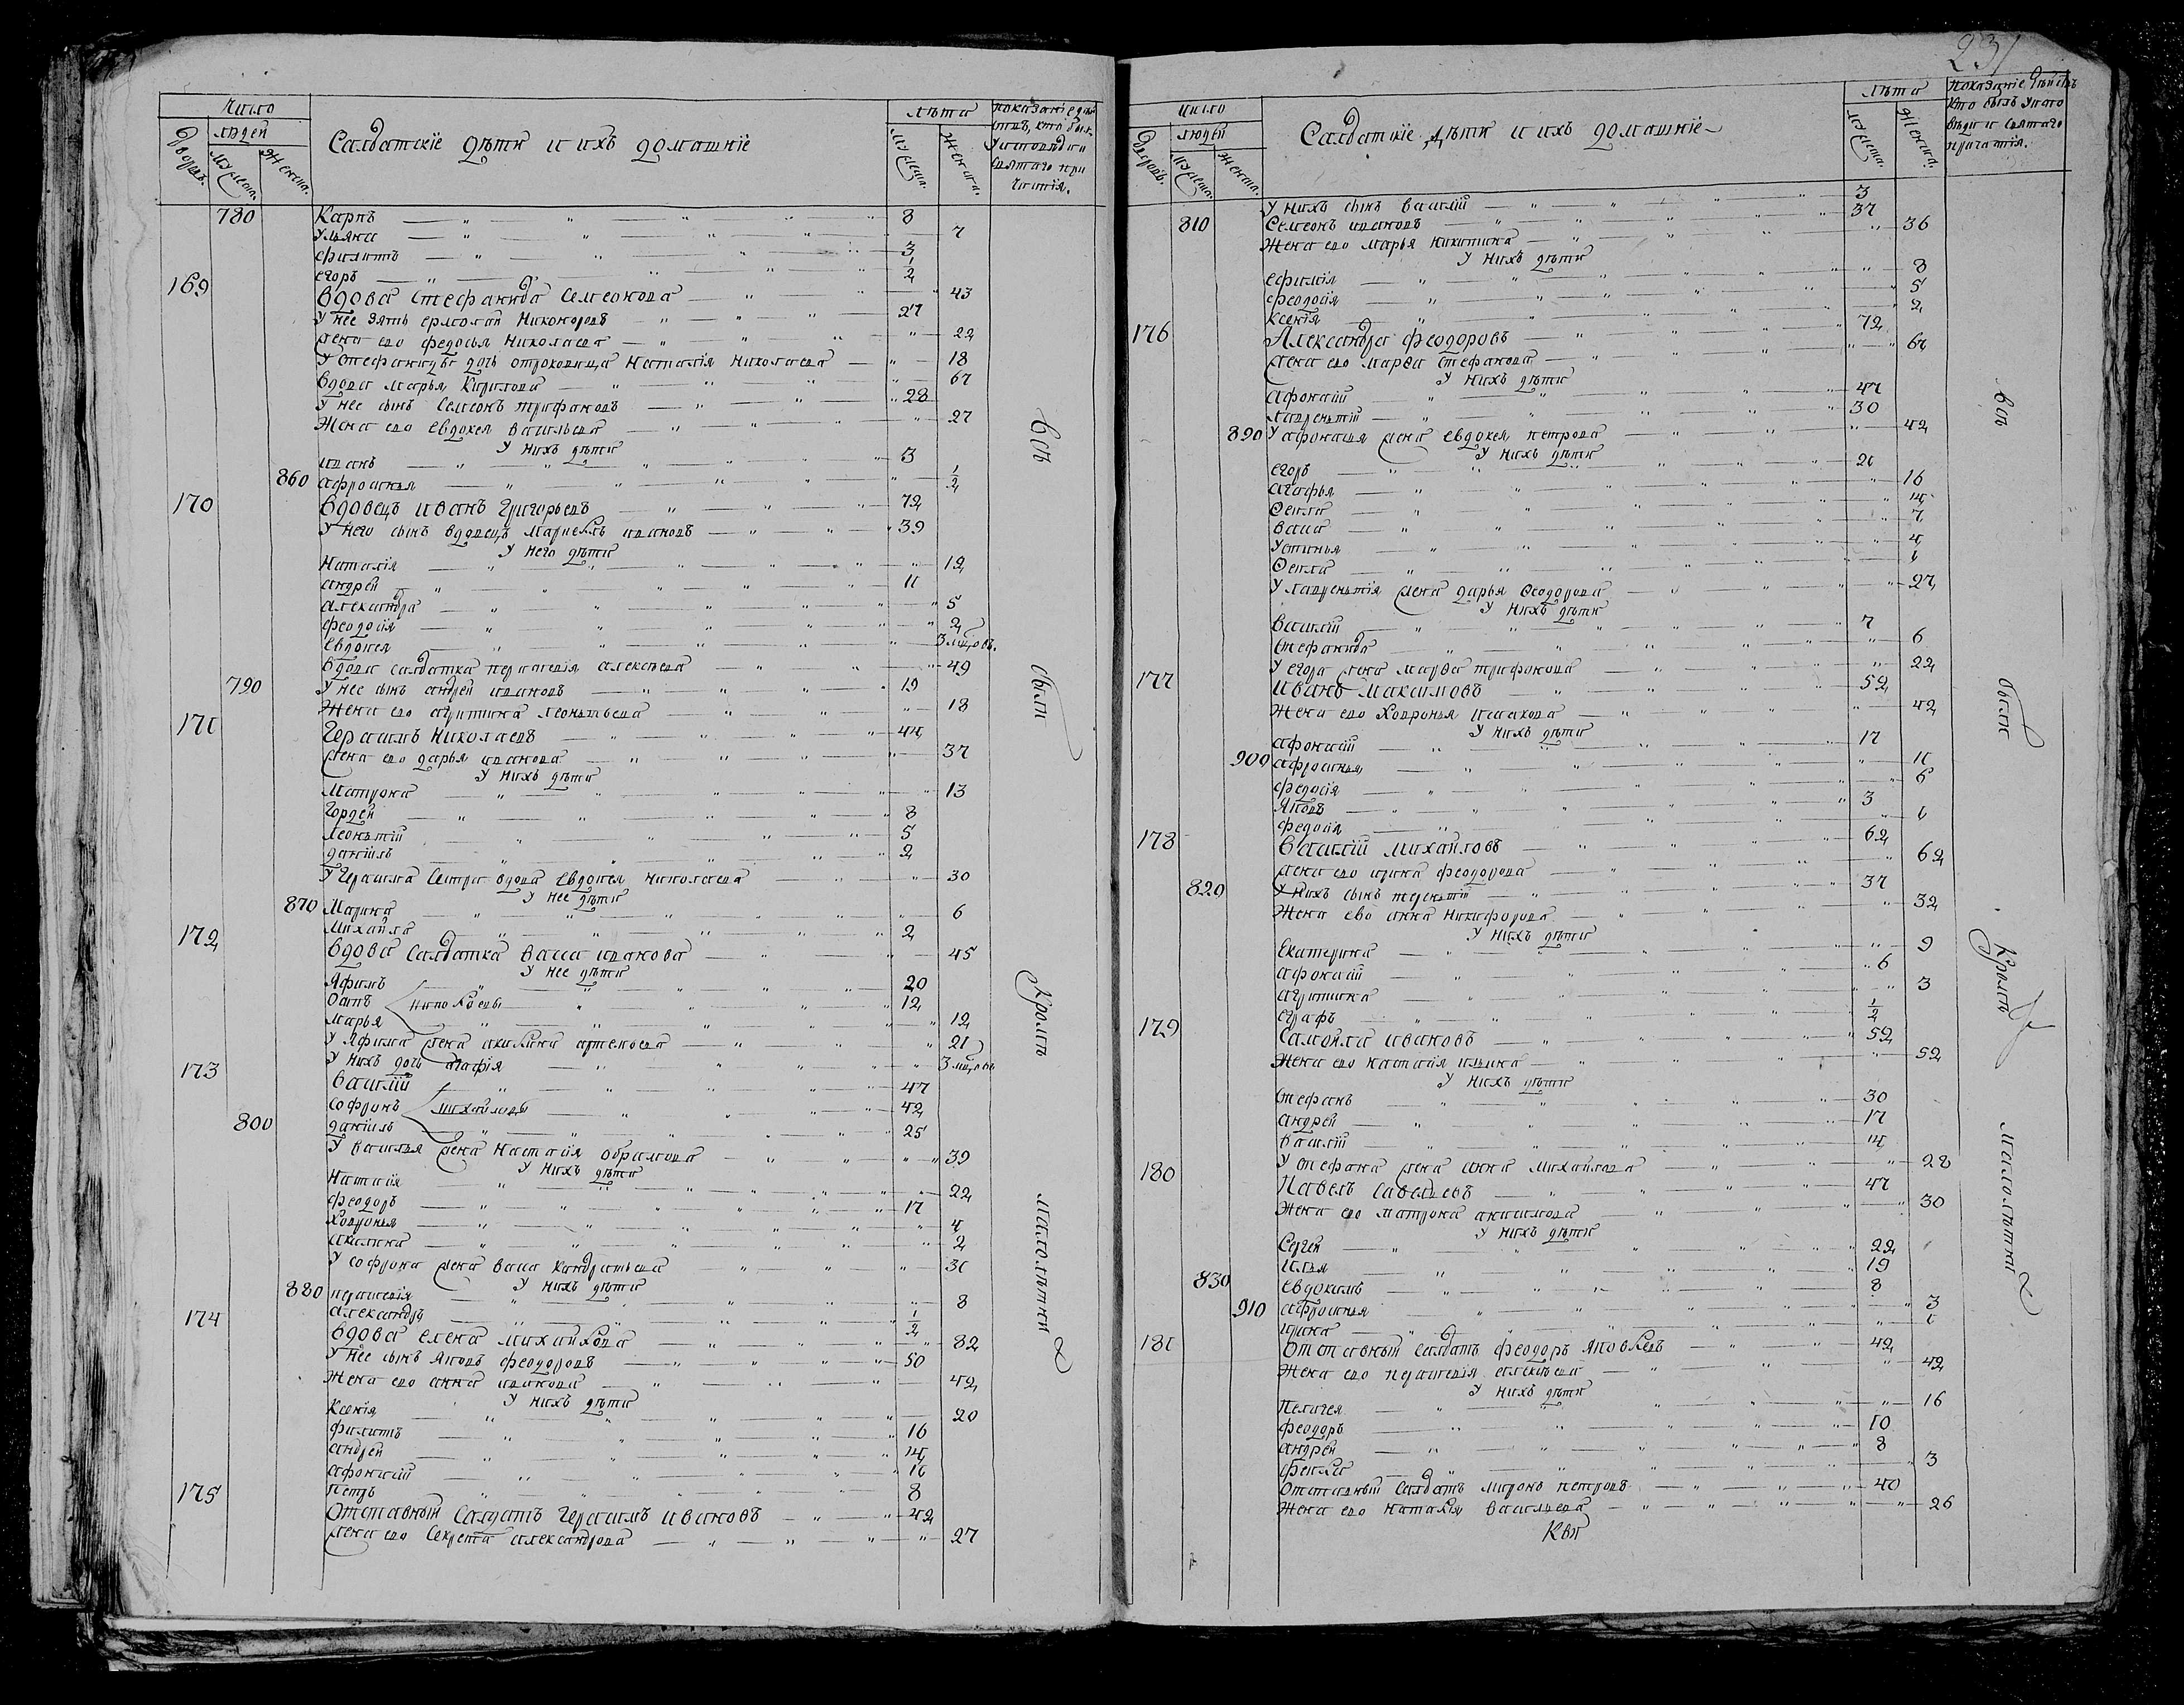 число
людей
дворовъ.
мужеска.
женска.
Салдатскіе дѣти и ихъ домашніе
лѣта
мужеска.
женска.
780 Карпъ 8
Ульяна 7
Филипъ 3
Егоръ 1/2
169 Вдова Стефанида Семеонова 43
У нее зять Ермолай Никоноровъ 27
жена ево Федосья Николаева 22
У Стефаниды дочь отроковица Наталія Николаева 18
Вдова Марья Кирилова 67
У нее сынъ Семеонъ Трифановъ 28
Жена ево Евдокея Васильева 27
У нихъ дѣти
Иванъ 3
860 Афросинья 1/2
170 Вдовецъ Иванъ Григорьевъ 72
У него сынъ вдовецъ Ивановъ 39
У него дѣти
Наталія 12
Андрей 11
Александра 5
Феодосія 2
Евдокея 3 мцовъ.
Вдова салдатка Параскевія Алексѣева 49
790 У нее сынъ Андрей Ивановъ 19
Жена ево Агрипина Леонтьева 18
171 Герасимъ Николаевъ 44
жена ево Дарья Иванова 37
У нихъ дѣти
Матрона 13
Гордей 8
Леонътій 5
Даніилъ 2
У Герасима сестра вдова Евдокея Николаева 30
У нее дѣти
870 Марина 6
Михайла 2
172 Вдова салдатка Васса Иванова 45
У нее дѣти
Яфимъ 20
Осипъ 12
Марья 12
У Яфима жена Акилина Артемоева 21
У нихъ дочь Агафія 3 мцовъ
173 Василій 47
Софронъ Михайловы 42
800 Даніилъ 25
У Василья жена Настасія Обрамова 39
У нихъ дѣти
Настасія 22
Феодоръ 17
Ховронья 4
Акилина 2
У Софрона жена Васса Кандратьева 31
У нихъ дѣти
880 Параскевія 8
Александръ 1/2
174 Вдова Елена Михайлова 82
У нее сынъ Яковъ Феодоровъ 50
Жена ево Анна Иванова 42
У нихъ дѣти
Ксенія 20
Филипъ 16
Андрей 14
Афонасій 10
Петръ 8
175 Отставный Салдатъ Герасимъ Ивановъ 42
жена ево Александрова 27
Всѣ
были
кромѣ
малолѣтнихъ
231
число
людей
дворовъ.
мужеска.
женска.
Салдатскіе дѣти и ихъ домашніе
лѣта
мужеска.
женска.
У нихъ сынъ Василій 3
810 Семеонъ Ивановъ 37
Жена ево Марья Никитина 36
У нихъ дѣти
Ефимія 8
Феодосія 5
Ксенія 2
176 Александра Феодоровъ 72
жена ево Марфа Стефанова 67
У нихъ дѣти
Афонасій 47
Лаврентій 30
890 У Афонасія жена Евдокея Петрова 42
У нихъ дѣти
Егоръ 21
Агафья 16
Өекла 14
Васса 7
Устинья 4
Өекла 1
У Лаврентія жена Дарья Өеодорова 27
У нихъ дѣти
Василій 7
Стефанида 6
У Егора жена Марфа Трифонова 22
177 Иванъ Максимовъ 52
Жена ево Ховронья Исакова 42
У нихъ дѣти
Афонасій 17
900 Афросинья 11
Федосія 6
Яковъ 3
Федосія 1
178 Василій Михайловъ 62
жена ево Ирина Феодорова 62
820 У нихъ сынъ Терентій 37
Жена ево Анна Никифорова 32
У нихъ дѣти
Екатерина 9
Афонасій 6
Агрипина 3
1/2
179 Самойла Ивановъ 52
Жена ево Настасія Ильина 52
У нихъ дѣти
Стефанъ 30
Андрей 17
Василій 14
У Стефана жена Анна Михайлова 28
180 Павелъ Савельевъ 47
Жена ево Матрона Анисимова 30
У нихъ дѣти
Сергей 22
Илья 19
830 Евдокимъ 8
910 Афросинья 3
Ирина 1
181 Отставный Салдатъ Феодоръ Яковлевъ 42
Жена ево Параскевія Алексѣева 42
У нихъ дѣти
Пелагея 16
Феодоръ 10
Андрей 8
Фекла 3
Отставный Салдатъ Миронъ Петровъ 40
Жена ево Наталья Васильева 26
Всѣ
были
кромѣ
малолѣтнихъ